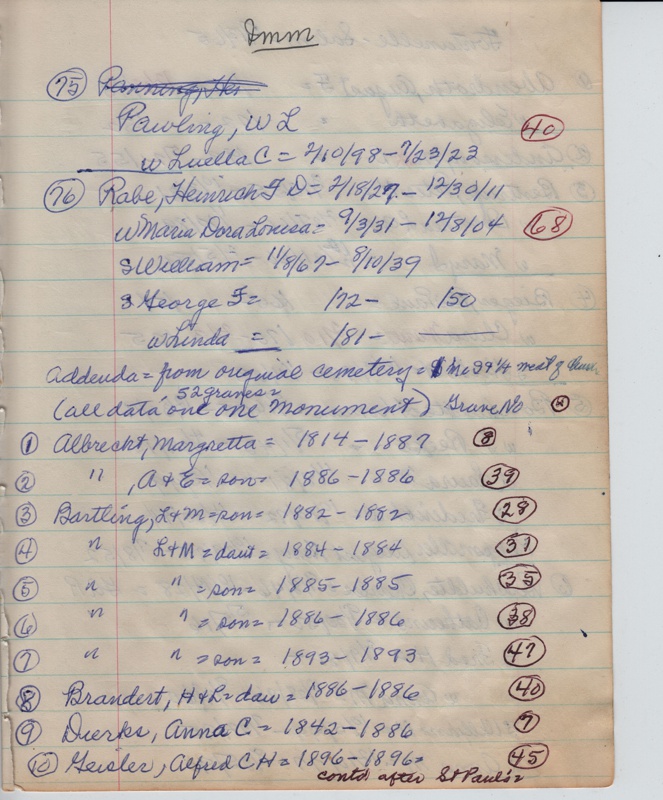 Imm
75 Panning, Hy
Pawling, W L 40
w Luella C = 2/10/98 - 7/23/23
76 Rabe, Heinrich F D = 2/18/27 - 12/30/11
w Maria Dora Louisa = 9/3/31 - 12/8/04 68
s William = 11/8/67 - 8/10/39
s George F = /72 - /50
w Linda = /81 -
Addenda = from original cemetery = 1 mi 99 1/4 west of
52 graves =
(all data one one monument) Grave No
1 Albrecht, Margretta = 1814 - 1887 8
2 " , A & E = son = 1886 - 1886 39
3 Bartling, L + M = son = 1882 - 1882 28
4 " L + M = daut = 1884 - 1884 31
5 " " = son = 1885 - 1885 35
6 " " = son = 1886 - 1886 38
7 " " = son = 1893 - 1893 47
8 Brandert, H + L = daw = 1886 - 1886 40
9 Dierks, Anna C = 1842 - 1886 7
10 Geisler, Alfred C H = 1896 - 1896 = 45
contd after St Paul's =